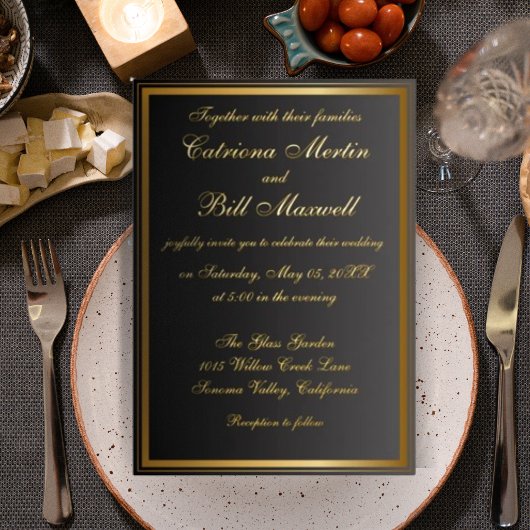 Together with their families
Catriona Mertin
and
Bill Maxwell
joyfully invite you to celebrate their wedding
on Saturday, May 05, 20XX
at 5:00 in the evening
The Glass Garden
1015 Willow Creek Lane
Sonoma Valley, California
Reception to follow